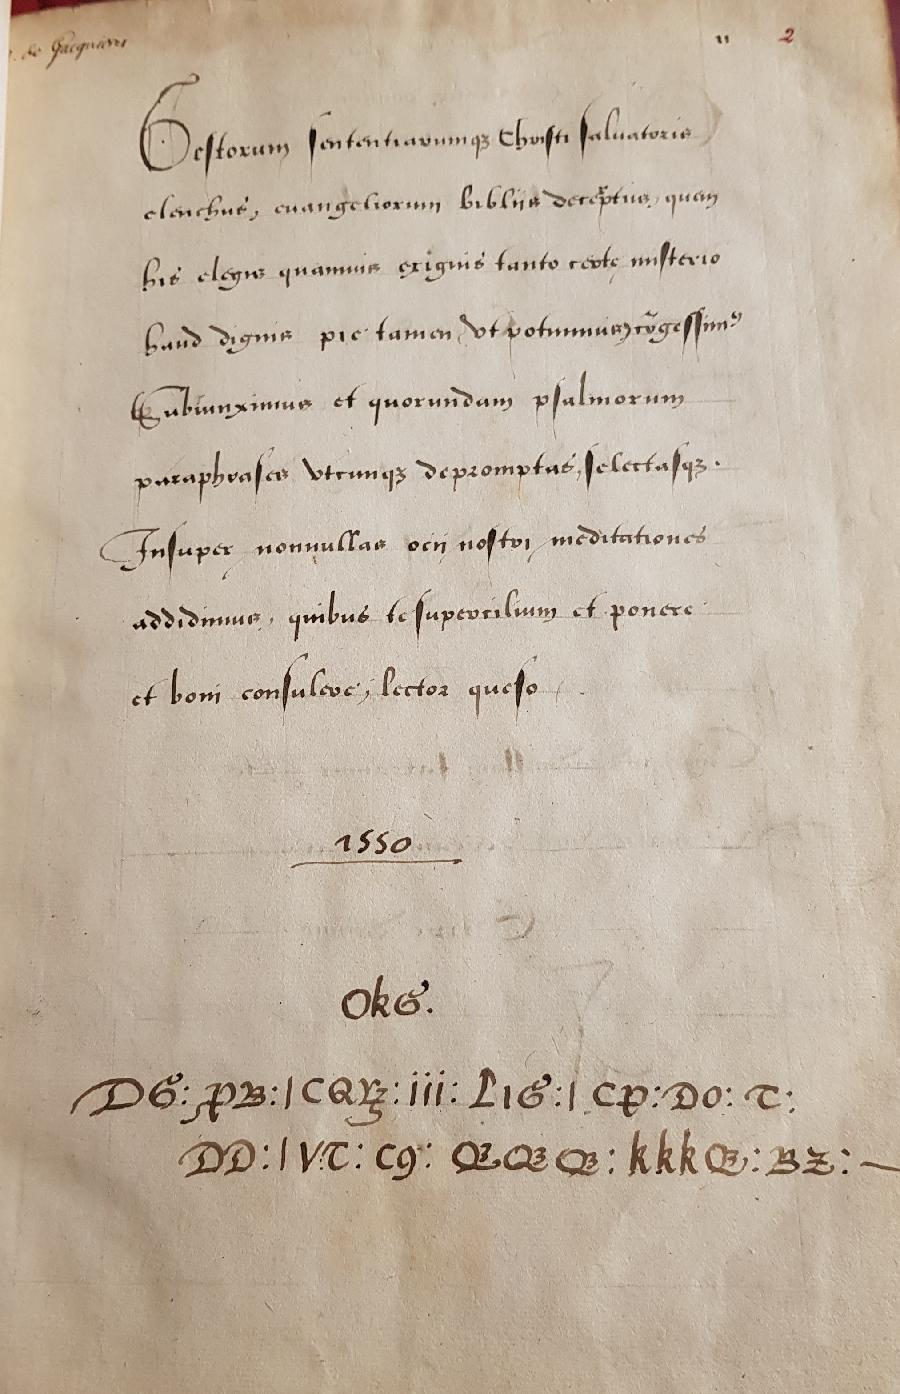 de Gacquieres
11 2
Gestorum sententiarumqꝫ Christi saluatoris
elenchus, euangeliorum biblijs deceptus, quem
his elegis quamuis exiguis tanto certe misterio
haud dignis pie tamen vt potuimus cōgessimꝰ
Subiunximus et quorundam psalmorum
paraphrases vtcunqꝫ depromptas, selectasqꝫ.
Insuper nonnullas ocij nostri meditationes
addidimus, quibus te supercilium et ponere
et boni consulere, lector queso
1550
OkG.
DG: PB:| CQ iii: LIG:| CP: DO: T:
DD:| VT: C9: kkk BZ: